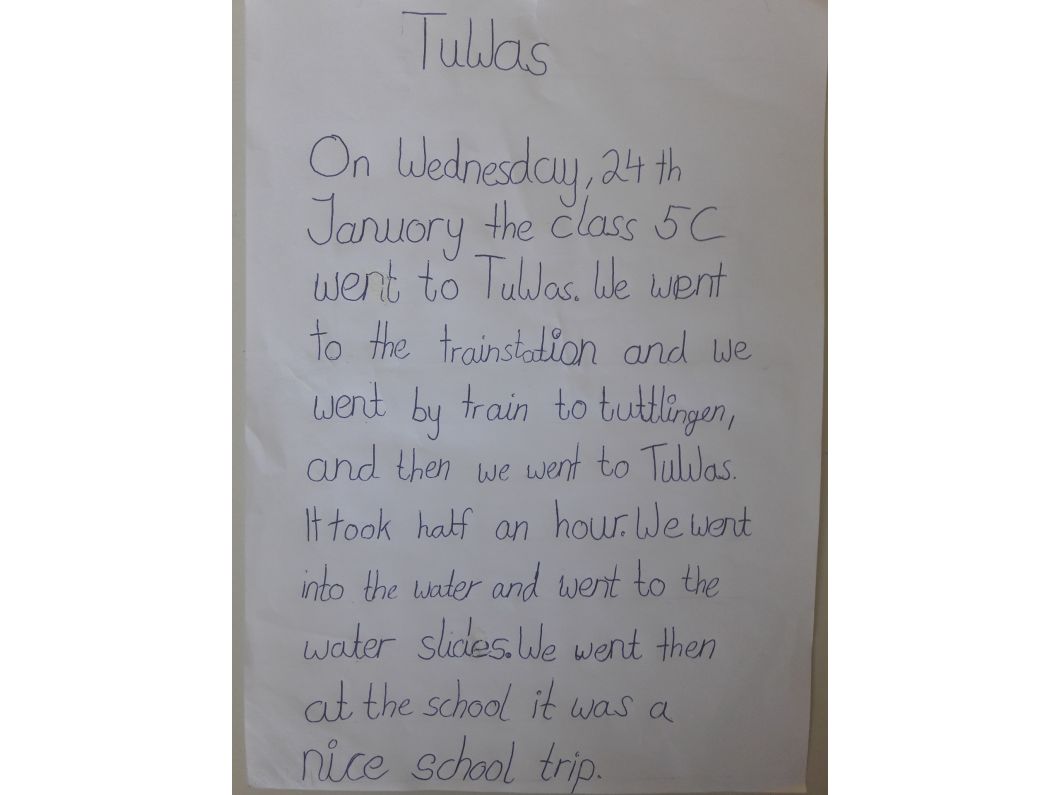 TuWas
On Wednesday, 24th
January the class 5C
went to TuWas. We went
to the trainstation and we
went by train to tuttlingen,
and then we went to TuWas.
It took half an hour. We went
into the water and went to the
water slides. We went then
at the school it was a
nice school trip.